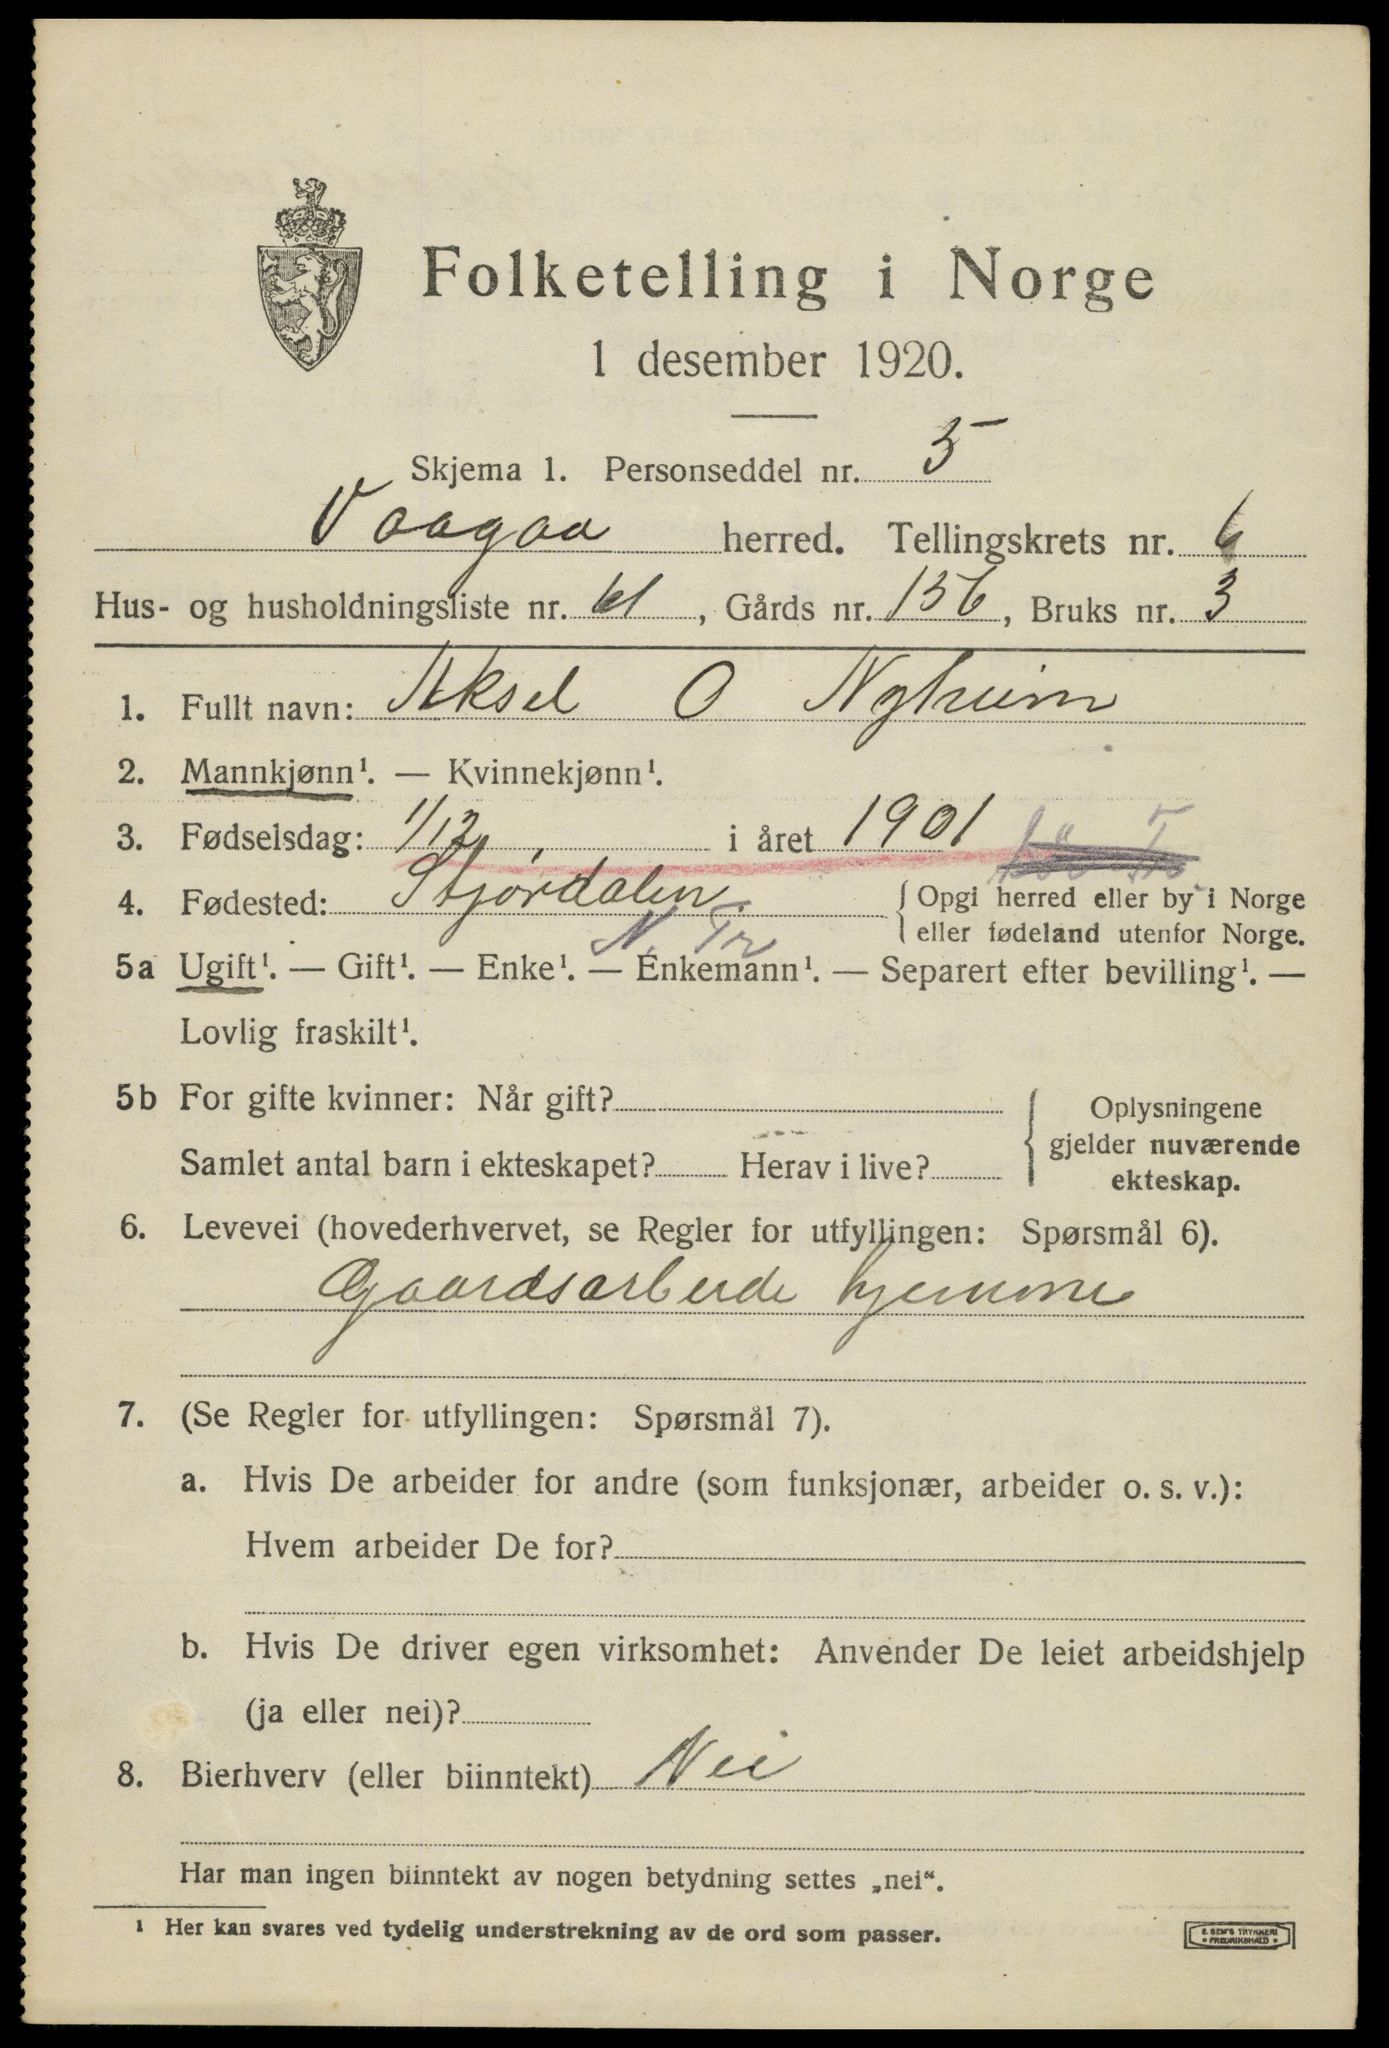 Folketelling i Norge
1 desember 1920.
Skjema 1. Personseddel nr. 5
Vaagaa herred. Tellingskrets nr. 6
Hus- og husholdningsliste nr. 61, Gårds nr. 156, Bruks nr. 3
1. Fullt navn: Aksel O Nyheim
2. Mannkjønn¹. — Kvinnekjønn¹.
3. Fødselsdag: 1/12, i året 1901
4. Fødested: Stjørdalen. { Opgi herred eller by i Norge
eller fødeland utenfor Norge.
N. Tr
5a Ugift¹. — Gift¹. — Enke¹. — Enkemann¹. — Separert efter bevilling¹. —
Lovlig fraskilt¹.
5b For gifte kvinner: Når gift? { Oplysningene
gjelder nuværende
Samlet antal barn i ekteskapet? Herav i live?
ekteskap.
6. Levevei (hovederhvervet, se Regler for utfyllingen: Spørsmål 6).
Gaardsarbeide hjemme
7. (Se Regler for utfyllingen: Spørsmål 7).
a. Hvis De arbeider for andre (som funksjonær, arbeider o. s. v.):
Hvem arbeider De for?
b. Hvis De driver egen virksomhet: Anvender De leiet arbeidshjelp
(ja eller nei)?
8. Bierhverv (eller biinntekt) Nei
Har man ingen biinntekt av nogen betydning settes „nei“.
¹ Her kan svares ved tydelig understrekning av de ord som passer.
E. SEM'S TRYKKERI
FREDRIKSHALD